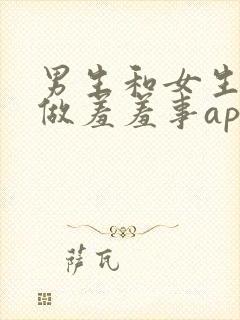 男生和女生
做羞羞事ap
萨瓦